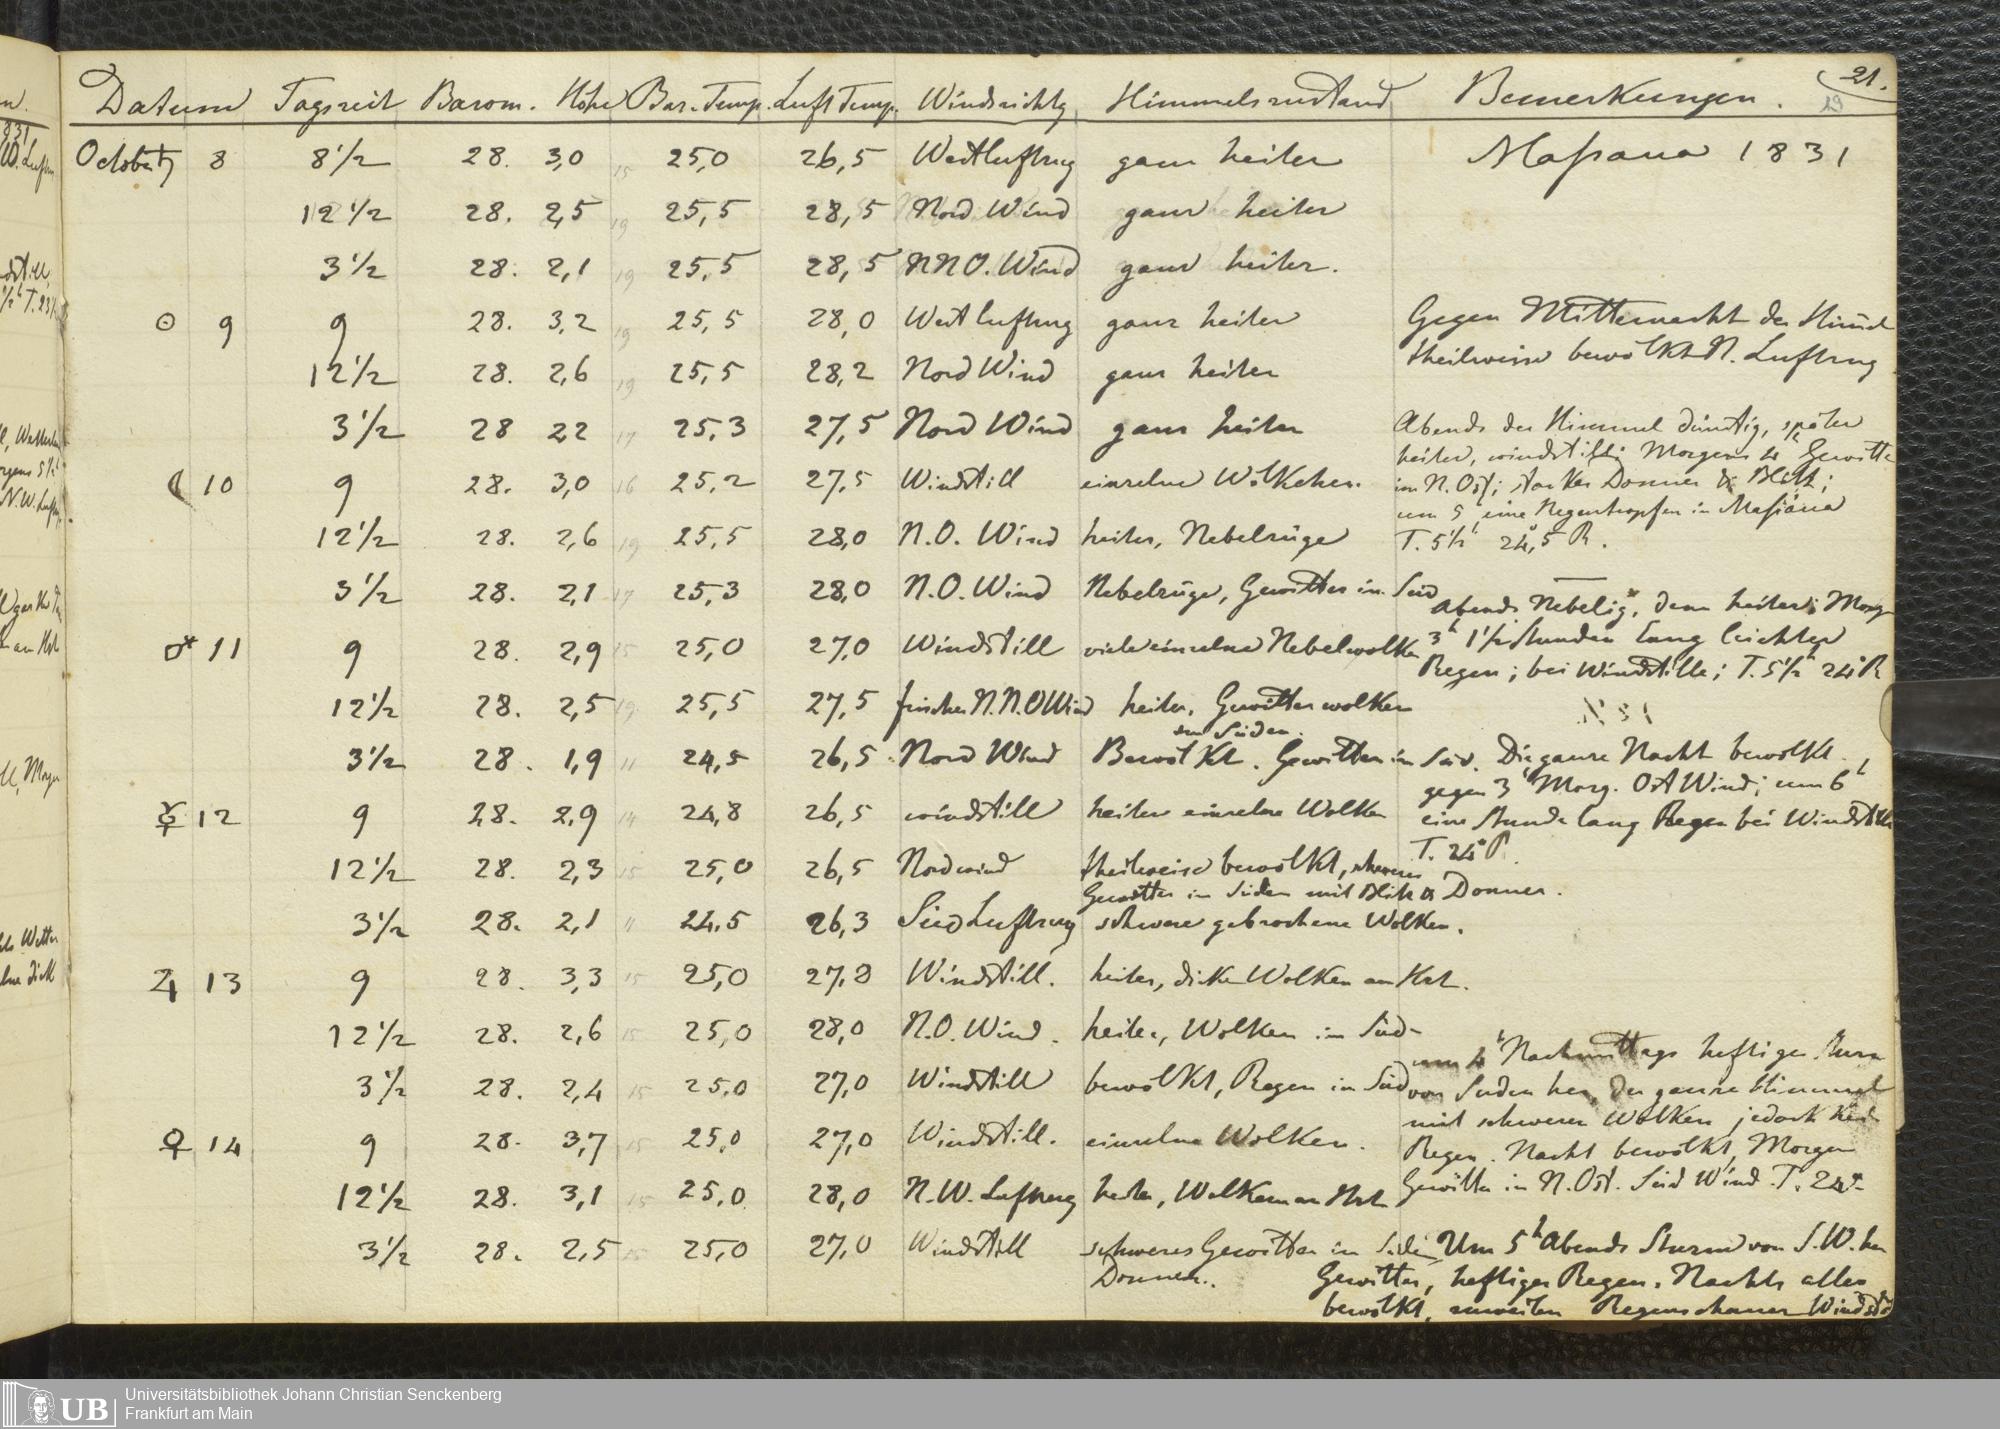 Datum Tagszeit Barom. Höhe Bar. Temp. Luft Temp. Windrichtg Himmelszustand Bemerkungen. 21.
October ♄ 8 8 1/2 28. 3,0 15 25,0 26,5 Westluftzug ganz heiter Massaua 1831
12 1/2 28. 2,5 19 25,5 28,5 Nord Wind ganz heiter
3 1/2 28. 2,1 19 25,5 28,5 NNO. Wind ganz heiter.
☉ 9 9 28. 3,2 19 25,5 28,0 West luftzug ganz heiter
Gegen Mitternacht der Himel
theilweise bewölkt N. Luftzug
12 1/2 28. 2,6 19 25,5 28,2 Nord Wind ganz heiter
3 1/2 28 2,2 17 25,3 27,5 Nord Wind ganz heiter
Abends der Himmel dünstig, später
heiter, windstill; Morgens 4h Gewitte
im N. Ost; starker Donner & Blitz;
um 5h eine Regentropfen in Massaua
T. 5 1/2h 24,5 R.
☾ 10 9 28. 3,0 16 25,2 27,5 Windstill einzelne Wölkchen.
12 1/2 28. 2,6 19 25,5 28,0 N.O. Wind heiter, Nebelzüge
3 1/2 28. 2,1 17 25,3 28,0 N.O. Wind Nebelzüge, Gewitter in Süd
Abends Nebelig, dann heiter; Morg
3h 1 1/2 Stunden lang leichter
Regen; bei Windstille; T. 5 1/2h 24° R
♂ 11 9 28. 2,9 15 25,0 27,0 Windstill viele einzelne Nebelwolke
12 1/2 28. 2,5 19 25,5 27,5 frischer N.N.O Wind heiter, Gewitterwolken
im Süden.
3 1/2 28. 1,9 11 24,5 26,5 Nord Wind Bewölkt. Gewitter in Süd.
Die ganze Nacht bewölkt.
gegen 3h Morg. Ost Wind; um 6h
eine Stunde lang Regen bei Windstille
T. 24° R.
☿ 12 9 28. 2,9 14 24,8 26,5 windstill heiter einzelne Wolken
12 1/2 28. 2,3 15 25,0 26,5 Nordwind theilweise bewölkt, schweres
Gewitter im Süden mit Blitz & Donner.
3 1/2 28. 2,1 11 24,5 26,3 Süd Luftzug schwere gebrochene Wolken.
♃ 13 9 28. 3,3 15 25,0 27,8 Windstill. heiter, dicke Wolken am Hzt.
12 1/2 28. 2,6 15 25,0 28,0 N.O. Wind. heiter, Wolken im Süd-
3 1/2 28. 2,4 15 25,0 27,0 Windstill bewölkt, Regen in Süd
um 4h Nachmittags heftiger Sturm
von Süden her, der ganze Himmel
mit schweren Wolken jedoch kein
Regen. Nacht bewölkt, Morgen
Gewitter in N. Ost. Süd Wind. T. 24°
♀ 14 9 28. 3,7 15 25,0 27,0 Windstill. einzelne Wolken.
12 1/2 28. 3,1 15 25,0 28,0 N.W. Luftzug heiter, Wolken am Hzt
3 1/2 28. 2,5 15 25,0 27,0 Windstill schweres Gewitter im Süden
Donner.
Um 5h Abends Sturm von S.W. her
Gewitter, heftiger Regen. Nachts alles
bewölkt, zuweilen Regenschauer Windst
UB Universitätsbibliothek Johann Christian Senckenberg
Frankfurt am Main